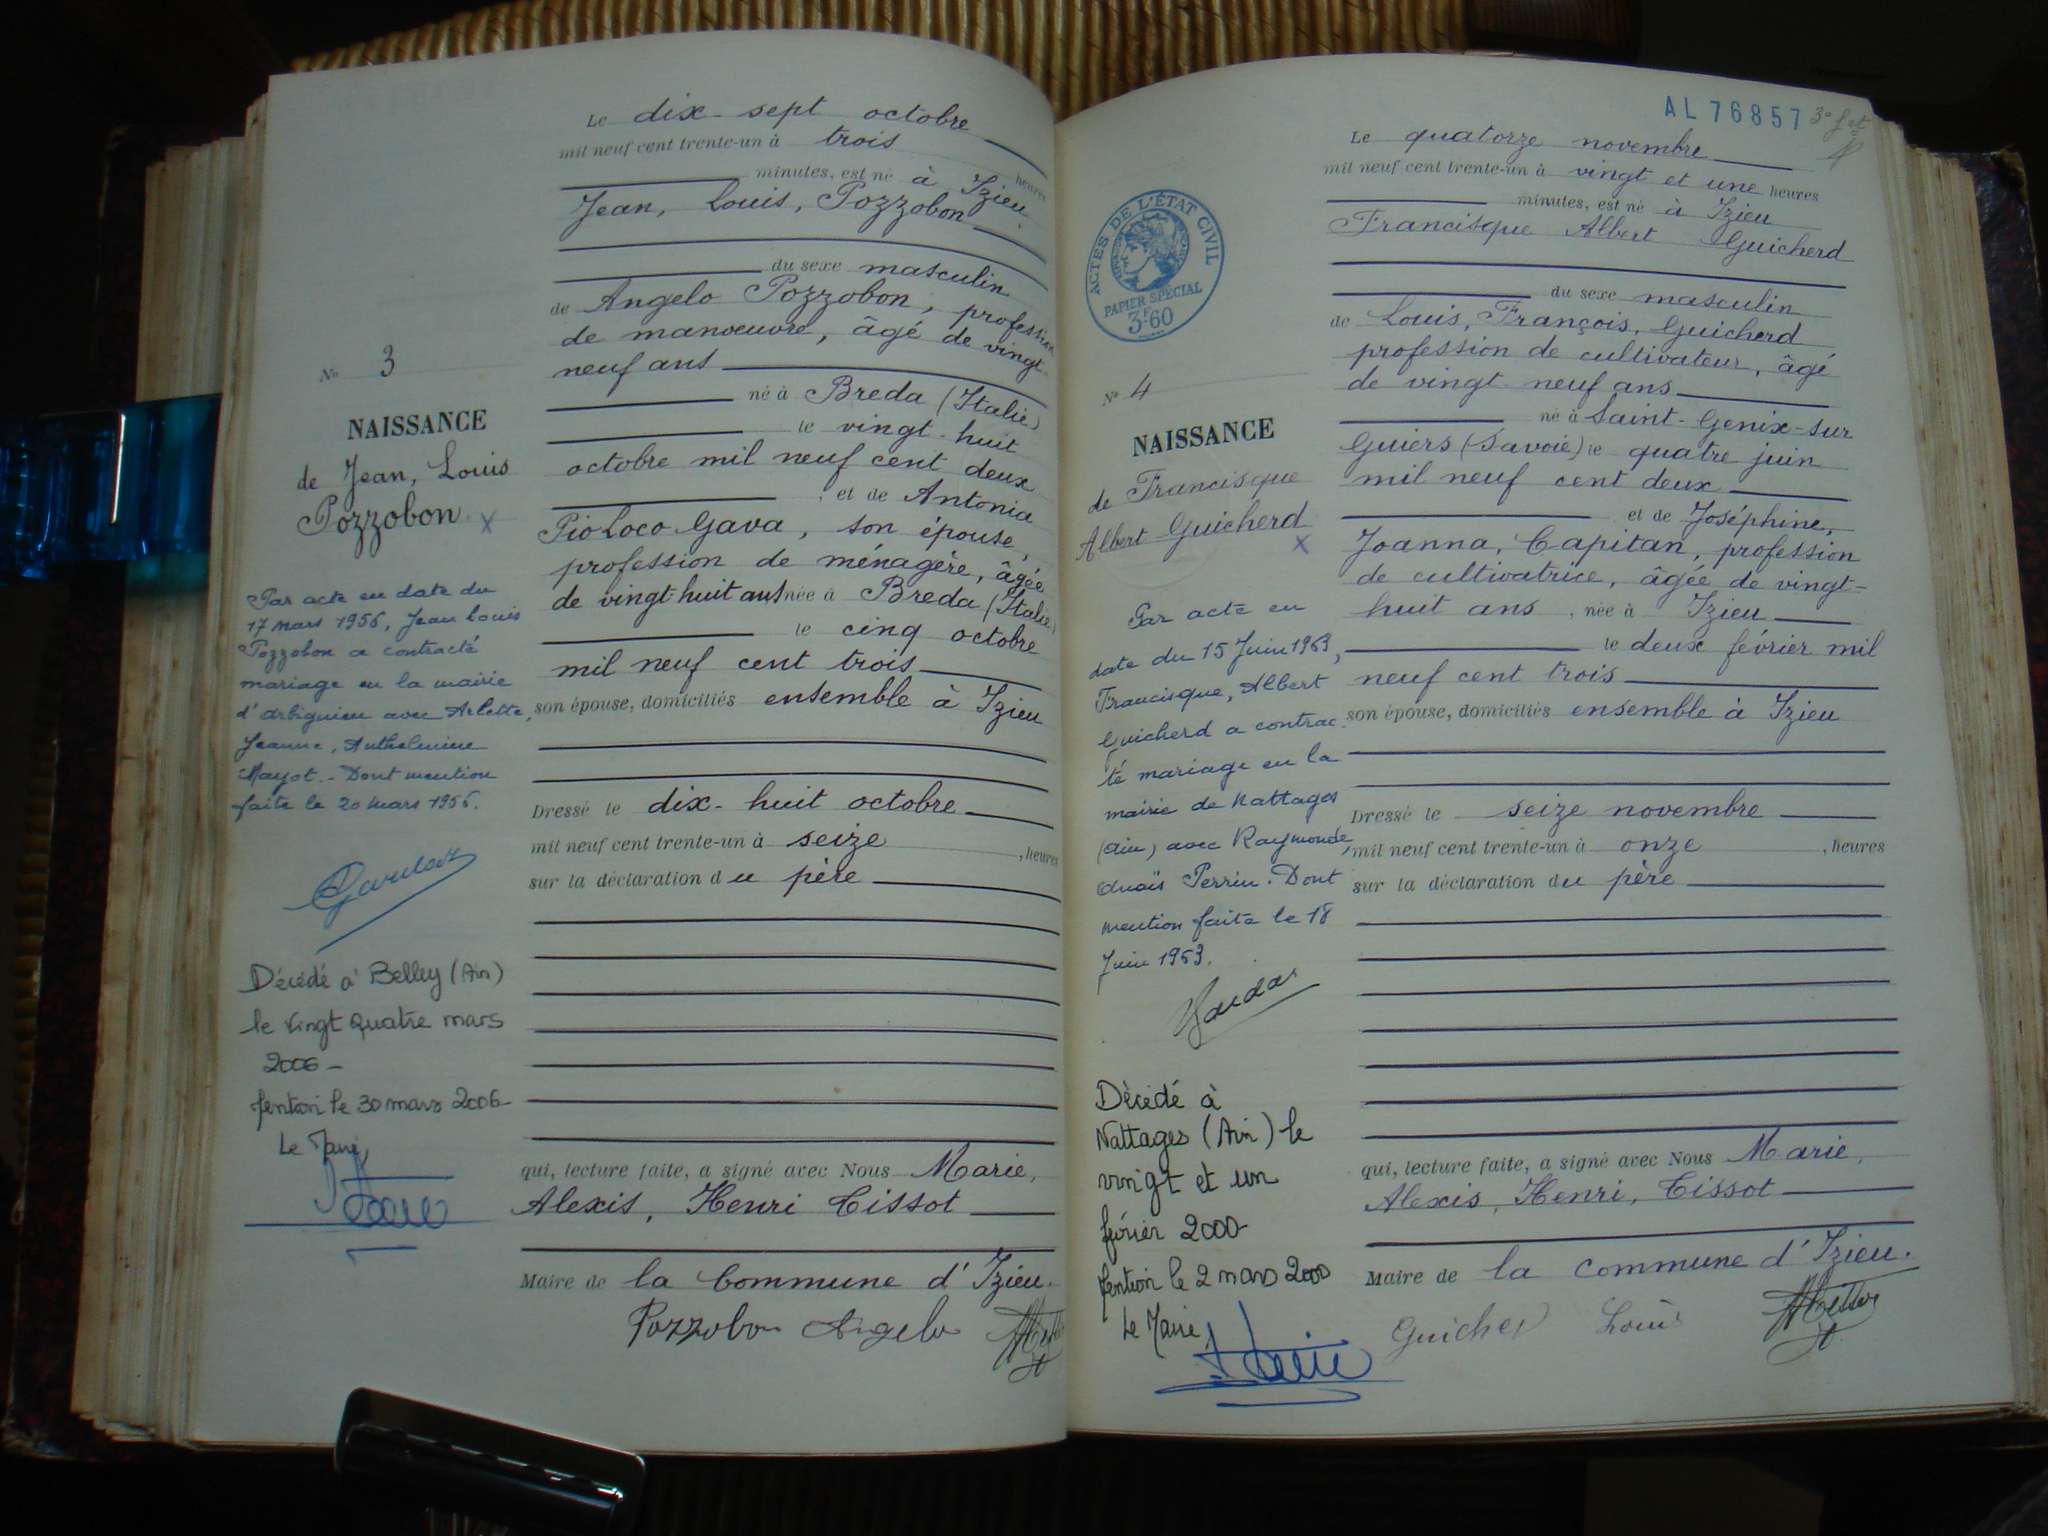 Le dix-sept octobre
mil neuf cent trente-un à trois heures
minutes, est né à Izieu
Jean, Louis, Pozzobon
du sexe masculin
de Angelo Pozzobon, profession
de manoeuvre, âgé de vingt
neuf ans
né à Breda (Italie)
le vingt-huit
octobre mil neuf cent deux
, et de Antonia
Pioloco Gava, son épouse,
profession de ménagère, âgée
de vingt huit ans née à Breda (Italie)
le cinq octobre
mil neuf cent trois
son épouse, domiciliés ensemble à Izieu
Dressé le dix-huit octobre
mil neuf cent trente-un à seize , heures
sur la déclaration du père
qui, lecture faite, a signé avec Nous Marie,
Alexis, Henri Tissot
Maire de la Commune d'Izieu.
Pozzobon Angelo
No 3
NAISSANCE
de Jean, Louis
Pozzobon X
Par acte en date du
17 mars 1956, Jean Louis
Pozzobon a contracté
mariage en la mairie
d'Arbignieu avec Arlette,
Jeanne, Anthelmine
Mayot. - Dont mention
faite le 20 mars 1956.
Décédé à Belley (Ain)
le vingt quatre mars
2006 -
Mention le 30 mars 2006-
Le Maire,
AL 76857
ACTES DE L'ÉTAT CIVIL
PAPIER SPÉCIAL
3F60
No 4
NAISSANCE
de Francisque
Albert Guicherd
X
Par acte en
date du 15 Juin 1963,
Francisque, Albert
Guicherd a contrac-
té mariage en la
mairie de Nattages
(Ain) avec Raymonde,
Perrin. Dont
mention faite le 18
Juin 1963.
Décédé à
Nattages (Ain) le
vingt et un
février 2000
Mention le 2 mars 2000
Le Maire,
Le quatorze novembre
mil neuf cent trente-un à vingt et une heures
minutes, est né à Izieu
Francisque Albert Guicherd
du sexe masculin
de Louis, François, Guicherd
profession de cultivateur, âgé
de vingt-neuf ans
né à Saint-Genix-sur
Guiers (Savoie) le quatre juin
mil neuf cent deux
et de Joséphine,
Joanna, Capitan, profession
de cultivatrice, âgée de vingt-
huit ans , née à Izieu
le deux février mil
neuf cent trois
son épouse, domiciliés ensemble à Izieu
Dressé le seize novembre
mil neuf cent trente-un à onze , heures
sur la déclaration du père
qui, lecture faite, a signé avec Nous Marie,
Alexis, Henri, Tissot
Maire de la commune d'Izieu.
Guicherd Louis